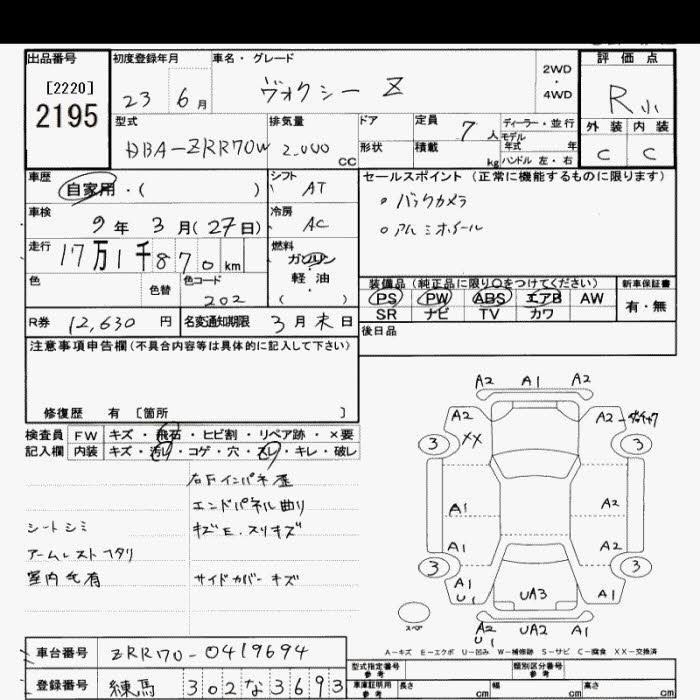 出品番号 初度登録年月 車名・グレード 2WD・4WD 評価点
[2220]
2195
23 6月 ヴォクシー Z R小
型式 排気量 ドア 定員 7人 ディーラー・並行 外装 内装
モデル年式 年
DBA-ZRR70W 2,000 CC 形状 積載 kg ハンドル 左・右 C C
車歴 シフト セールスポイント (正常に機能するものに限ります)
自家用・( ) AT 。バックカメラ
車検 冷房 。アルミホイール
9年 3月(27日) AC
走行 燃料
17万1千870km ガソリン・軽油
( )
色 色替 色コード 装備品 (純正品に限り○をつけてください) 新車保証書
202 PS PW ABS エアB AW 有・無
R券 12,630円 名変通知期限 3月末日 SR ナビ TV カワ
注意事項申告欄(不具合内容等は具体的に記入して下さい) 後日品
修復歴 有 〔箇所 〕
検査員 FW キズ・飛石・ヒビ割・リペア跡・×要
記入欄 内装 キズ・汚レ・コゲ・穴・スレ・キレ・破レ
右Fインパネ歪
エンドパネル曲り
シートシミ キズE.スリキズ
アームレストフタリ
室内 有 サイドカバーキズ
A2 A1 A2
A2 A2
3 XX 3
A1 A2
A1 A2
3 3
A1 U1 UA3 A1
スペア A2 U1 UA2 A1
A-キズ E-エクボ U-凹み W-補修跡 S-サビ C-腐食 XX-交換済
車台番号 ZRR70-0419694
型式指定番号 参考 類別区分番号 参考
登録番号 練馬 302な3693
車庫証明用 参考 長さ cm 幅 cm 高さ cm